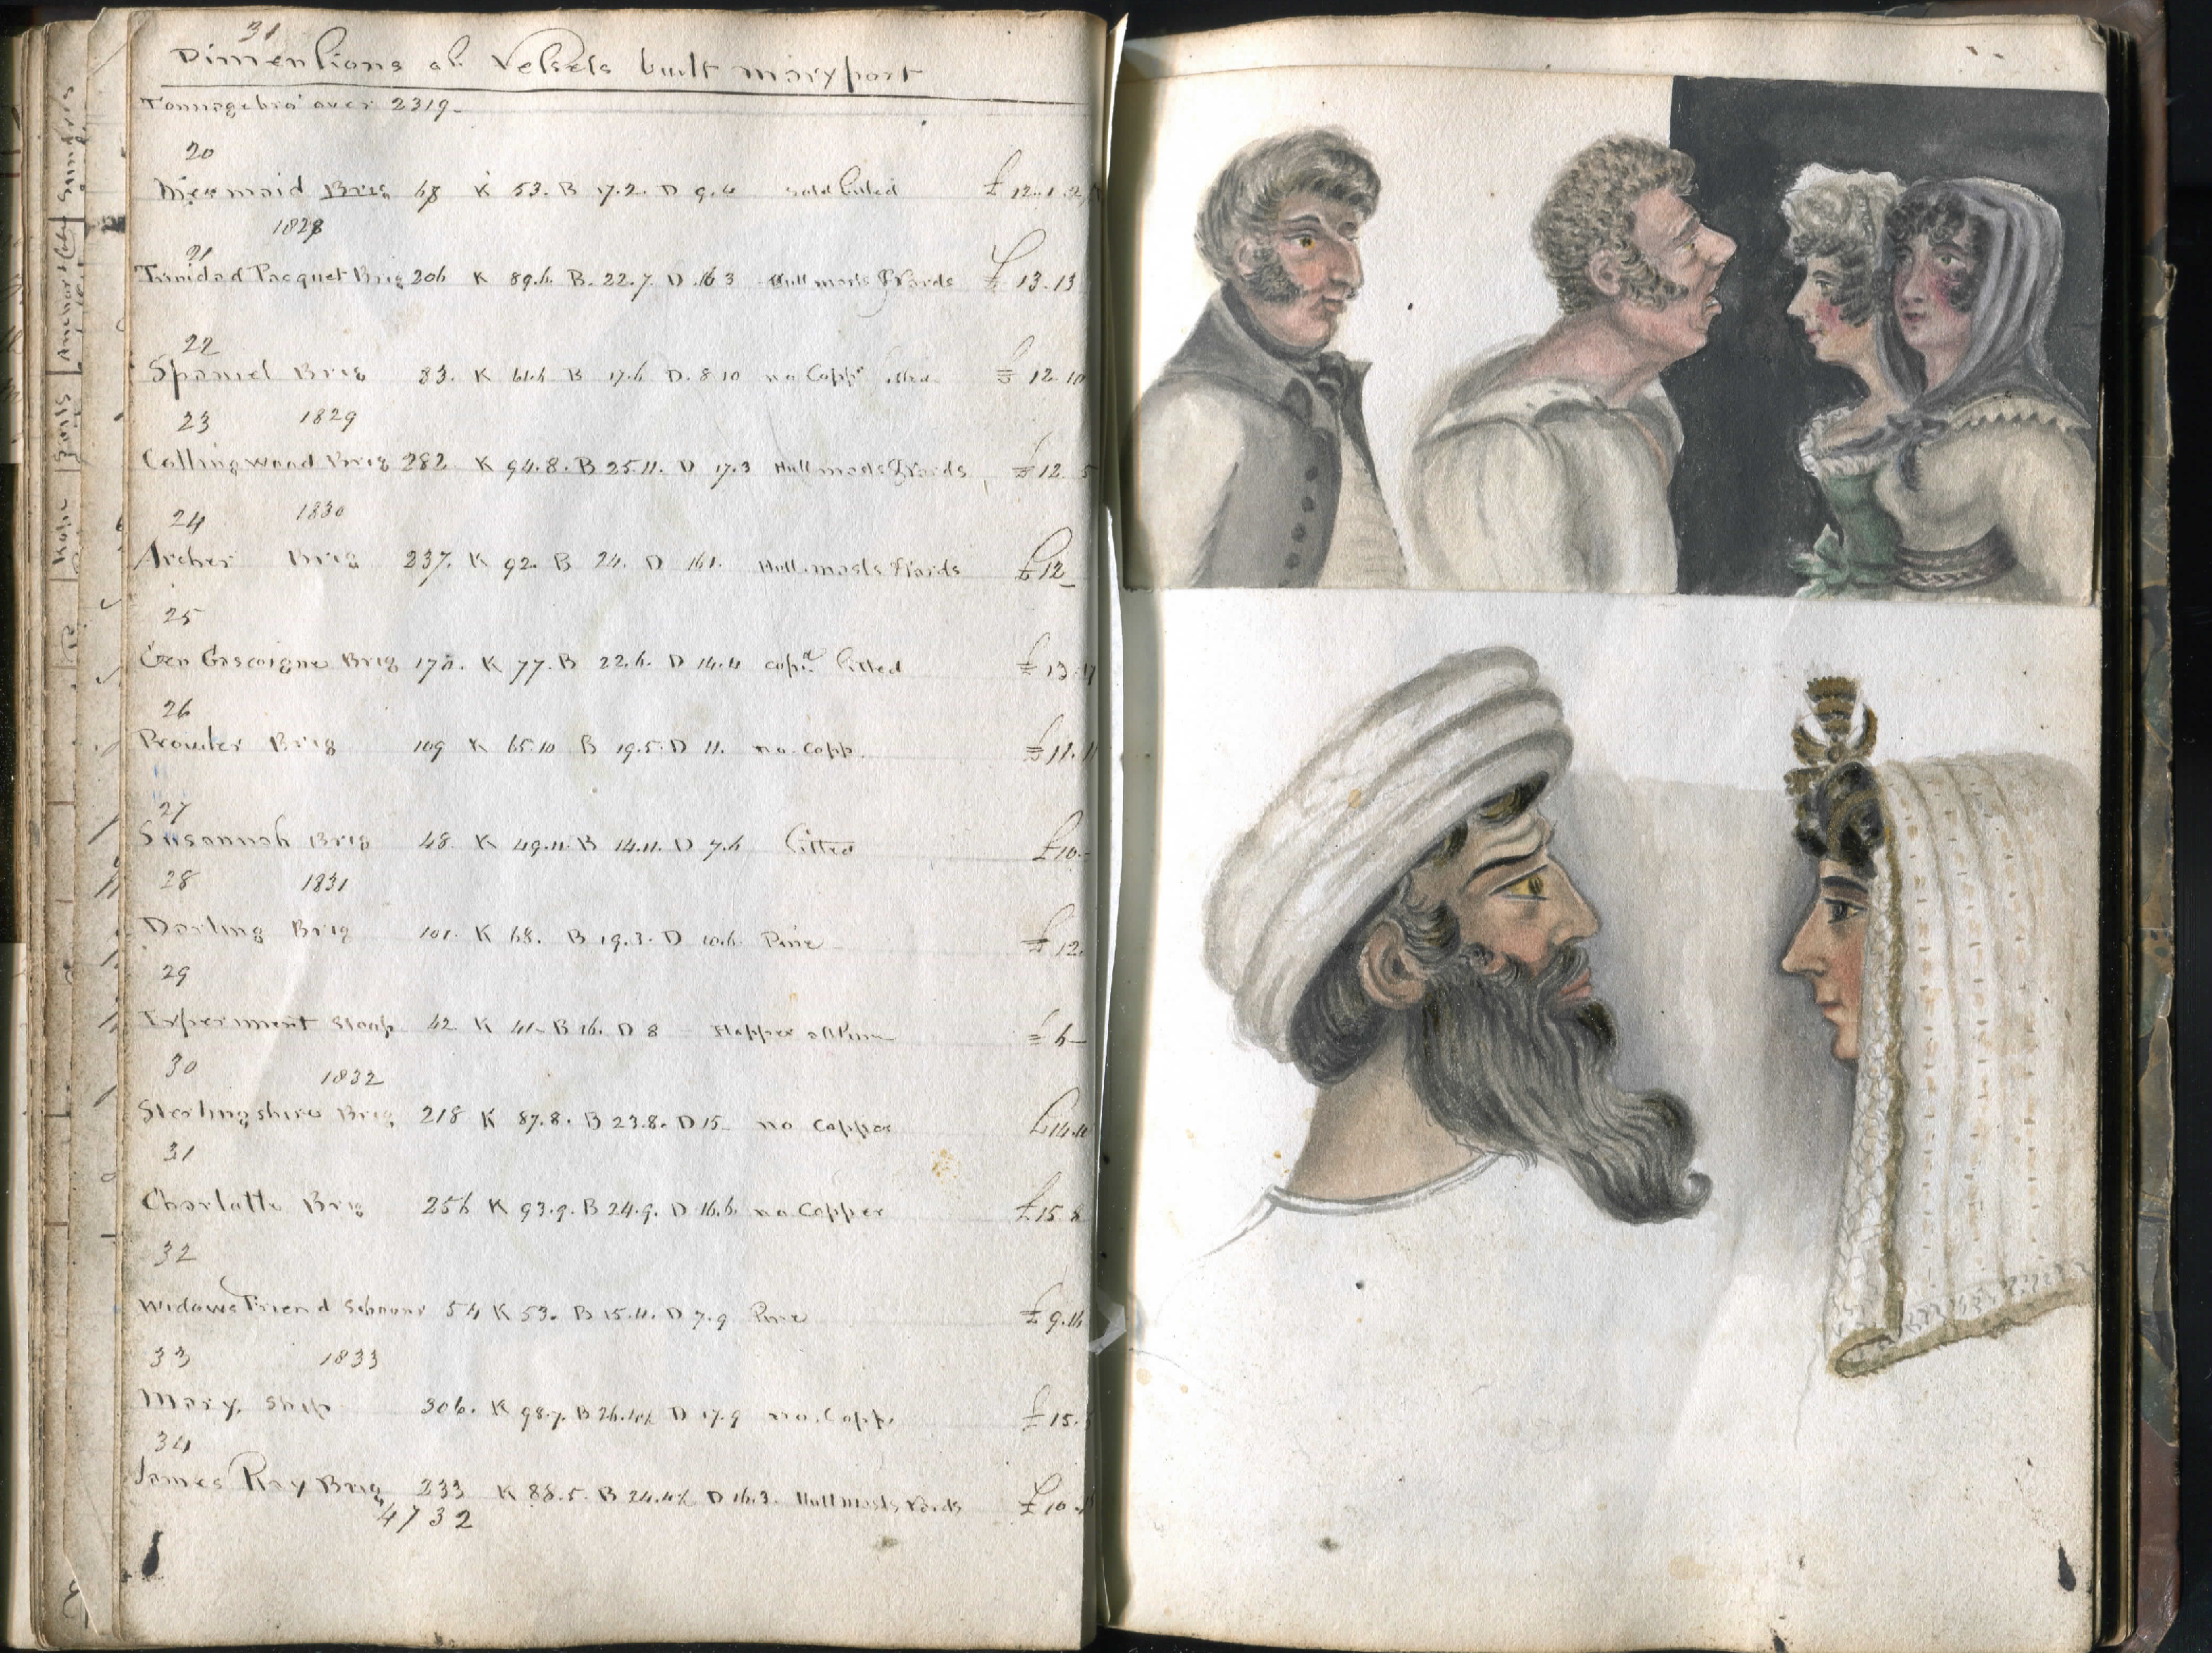 31
Dimensions of Vessels built maryport
Tonnage bro over 2319
20
Mermaid Brig 68 K 53. B 17.2. D 9.4 £12.1.
1828
21
Trinidad Pacquet Brig 206 K 89.6. B. 22.7. D .16 3 Hull masts & Yards £ 13.13
22
Spaniel Brig 83. K 61.6 B 17.6 D. 8 10 no Copp £ 12 10
23 1829
Collingwood Brig 282 K 94.8. B 25.11. D 17.3 Hull masts & Yards £12 5
24 1830
Archer Brig 237. K 92. B 24. D 16 Hull masts & Yards £12
25
Gen Gascoigne Brig 170. K 77. B 22.6. D 14.4 fitted £13
26
Prowler Brig 109 K 65.10 B 19.5. D 11. no Copp. £11.
27
Susannah Brig 48. K 49.11. B 14.11. D 7.6 fitted £10.
28 1831
Darling Brig 101. K 68. B 19.3. D 10.6. £12.
29
Experiment Sloop 42 K 41 B 16. D 8 £6
30 1832
Sterlingshire Brig 218 K 87.8. B 23.8. D 15 no Copper £14.
31
Charlotte Brig 256 K 93.9. B 24.9. D 16.6. no Copper £15.
32
Widows Friend Schooner 54 K 53. B 15.11. D 7.9 £9.
33 1833
Mary Ship 306. K 98.7. B 26. D 17.9 no Copp. £15.
34
James Ray Brig 233 K 88.5. B D 16.3. Hull masts Yards £10
4732
Rope Sails Anchors Sundries